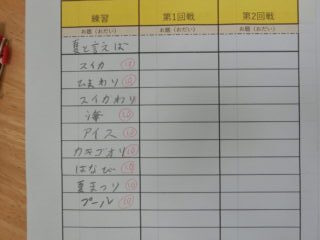 練習 第1回戦 第2回戦
お題（おだい） お題（おだい） お題（おだい）
夏と言えば
スイカ
ひまわり
スイカわり
海
アイス
カキゴオリ
はなび
夏まつり
プール